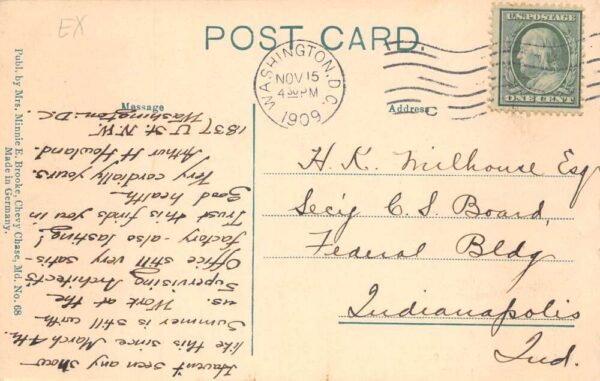 EX
POST CARD.
U.S. POSTAGE
ONE CENT
WASHINGTON, D.C.
NOV 15
4 30 PM
1909
C
Message
Address
H. K. Milhouse Esq
Sec'y C. S. Board,
Federal Bldg
Indianapolis
Ind.
Haven't seen any snow
like this since March 4th.
Summer is still with
us. Work at the
Supervising Architect's
Office still very satis-
factory - also lasting!
Trust this finds you in
Good health.
Very cordially yours.
Arthur H Howland.
1837 U St. N.W
Washington. D.C.
Publ. by Mrs. Minnie E. Brooke, Chevy Chase, Md. No. 68
Made in Germany.